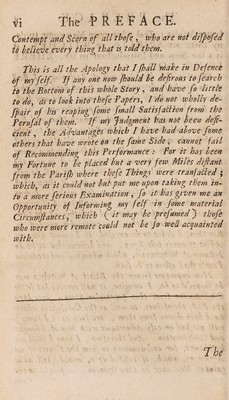 vi The PREFACE.
Contempt and Scorn of all those, who are not disposed
to believe every thing that is told them.
This is all the Apology that I shall make in Defence
of my self. If any one now should be desirous to search
to the Bottom of this whole Story, and have so little
to do, as to look into these Papers, I do not wholly de-
spair of his reaping some small Satisfaction from the
Perusal of them. If my Judgment has not been defi-
cient, the Advantages which I have had above some
others that have wrote on the same Side, cannot fail
of Recommending this Performance: For it has been
my Fortune to be placed but a very few Miles distant
from the Parish where these Things were transacted;
which, as it could not but put me upon taking them in-
to a more serious Examination, so it has given me an
Opportunity of Informing my self in some material
Circumstances, which (it may be presumed) those
who were more remote could not be so well acquainted
with.
The